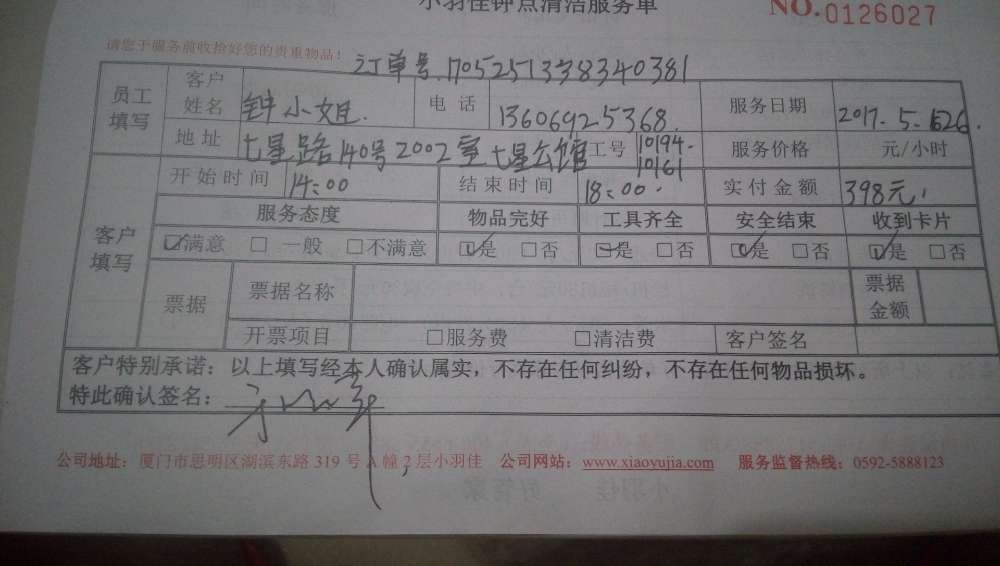 小羽佳钟点清洁服务单
NO.0126027
请您于服务前收拾好您的贵重物品!
订单号.1705251338340381
员工填写 客户姓名 钟小姐 电话 13606925368. 服务日期 2017.5.
地址 七星路140号2002室七星公馆 工号 10194. 10161 服务价格 元/小时
客户填写 开始时间 14:00 结束时间 18:00. 实付金额 398元.
服务态度 物品完好 工具齐全 安全结束 收到卡片
☑满意 □ 一般 □不满意 ☑是 □否 ☑是 □否 ☑是 □否 ☑是 □否
票据 票据名称 票据金额
开票项目 □服务费 □清洁费 客户签名
客户特别承诺:以上填写经本人确认属实,不存在任何纠纷,不存在任何物品损坏。
特此确认签名:
公司地址:厦门市思明区湖滨东路 319 号 A 幢 2 层小羽佳 公司网站:www.xiaoyujia.com 服务监督热线:0592-5888123